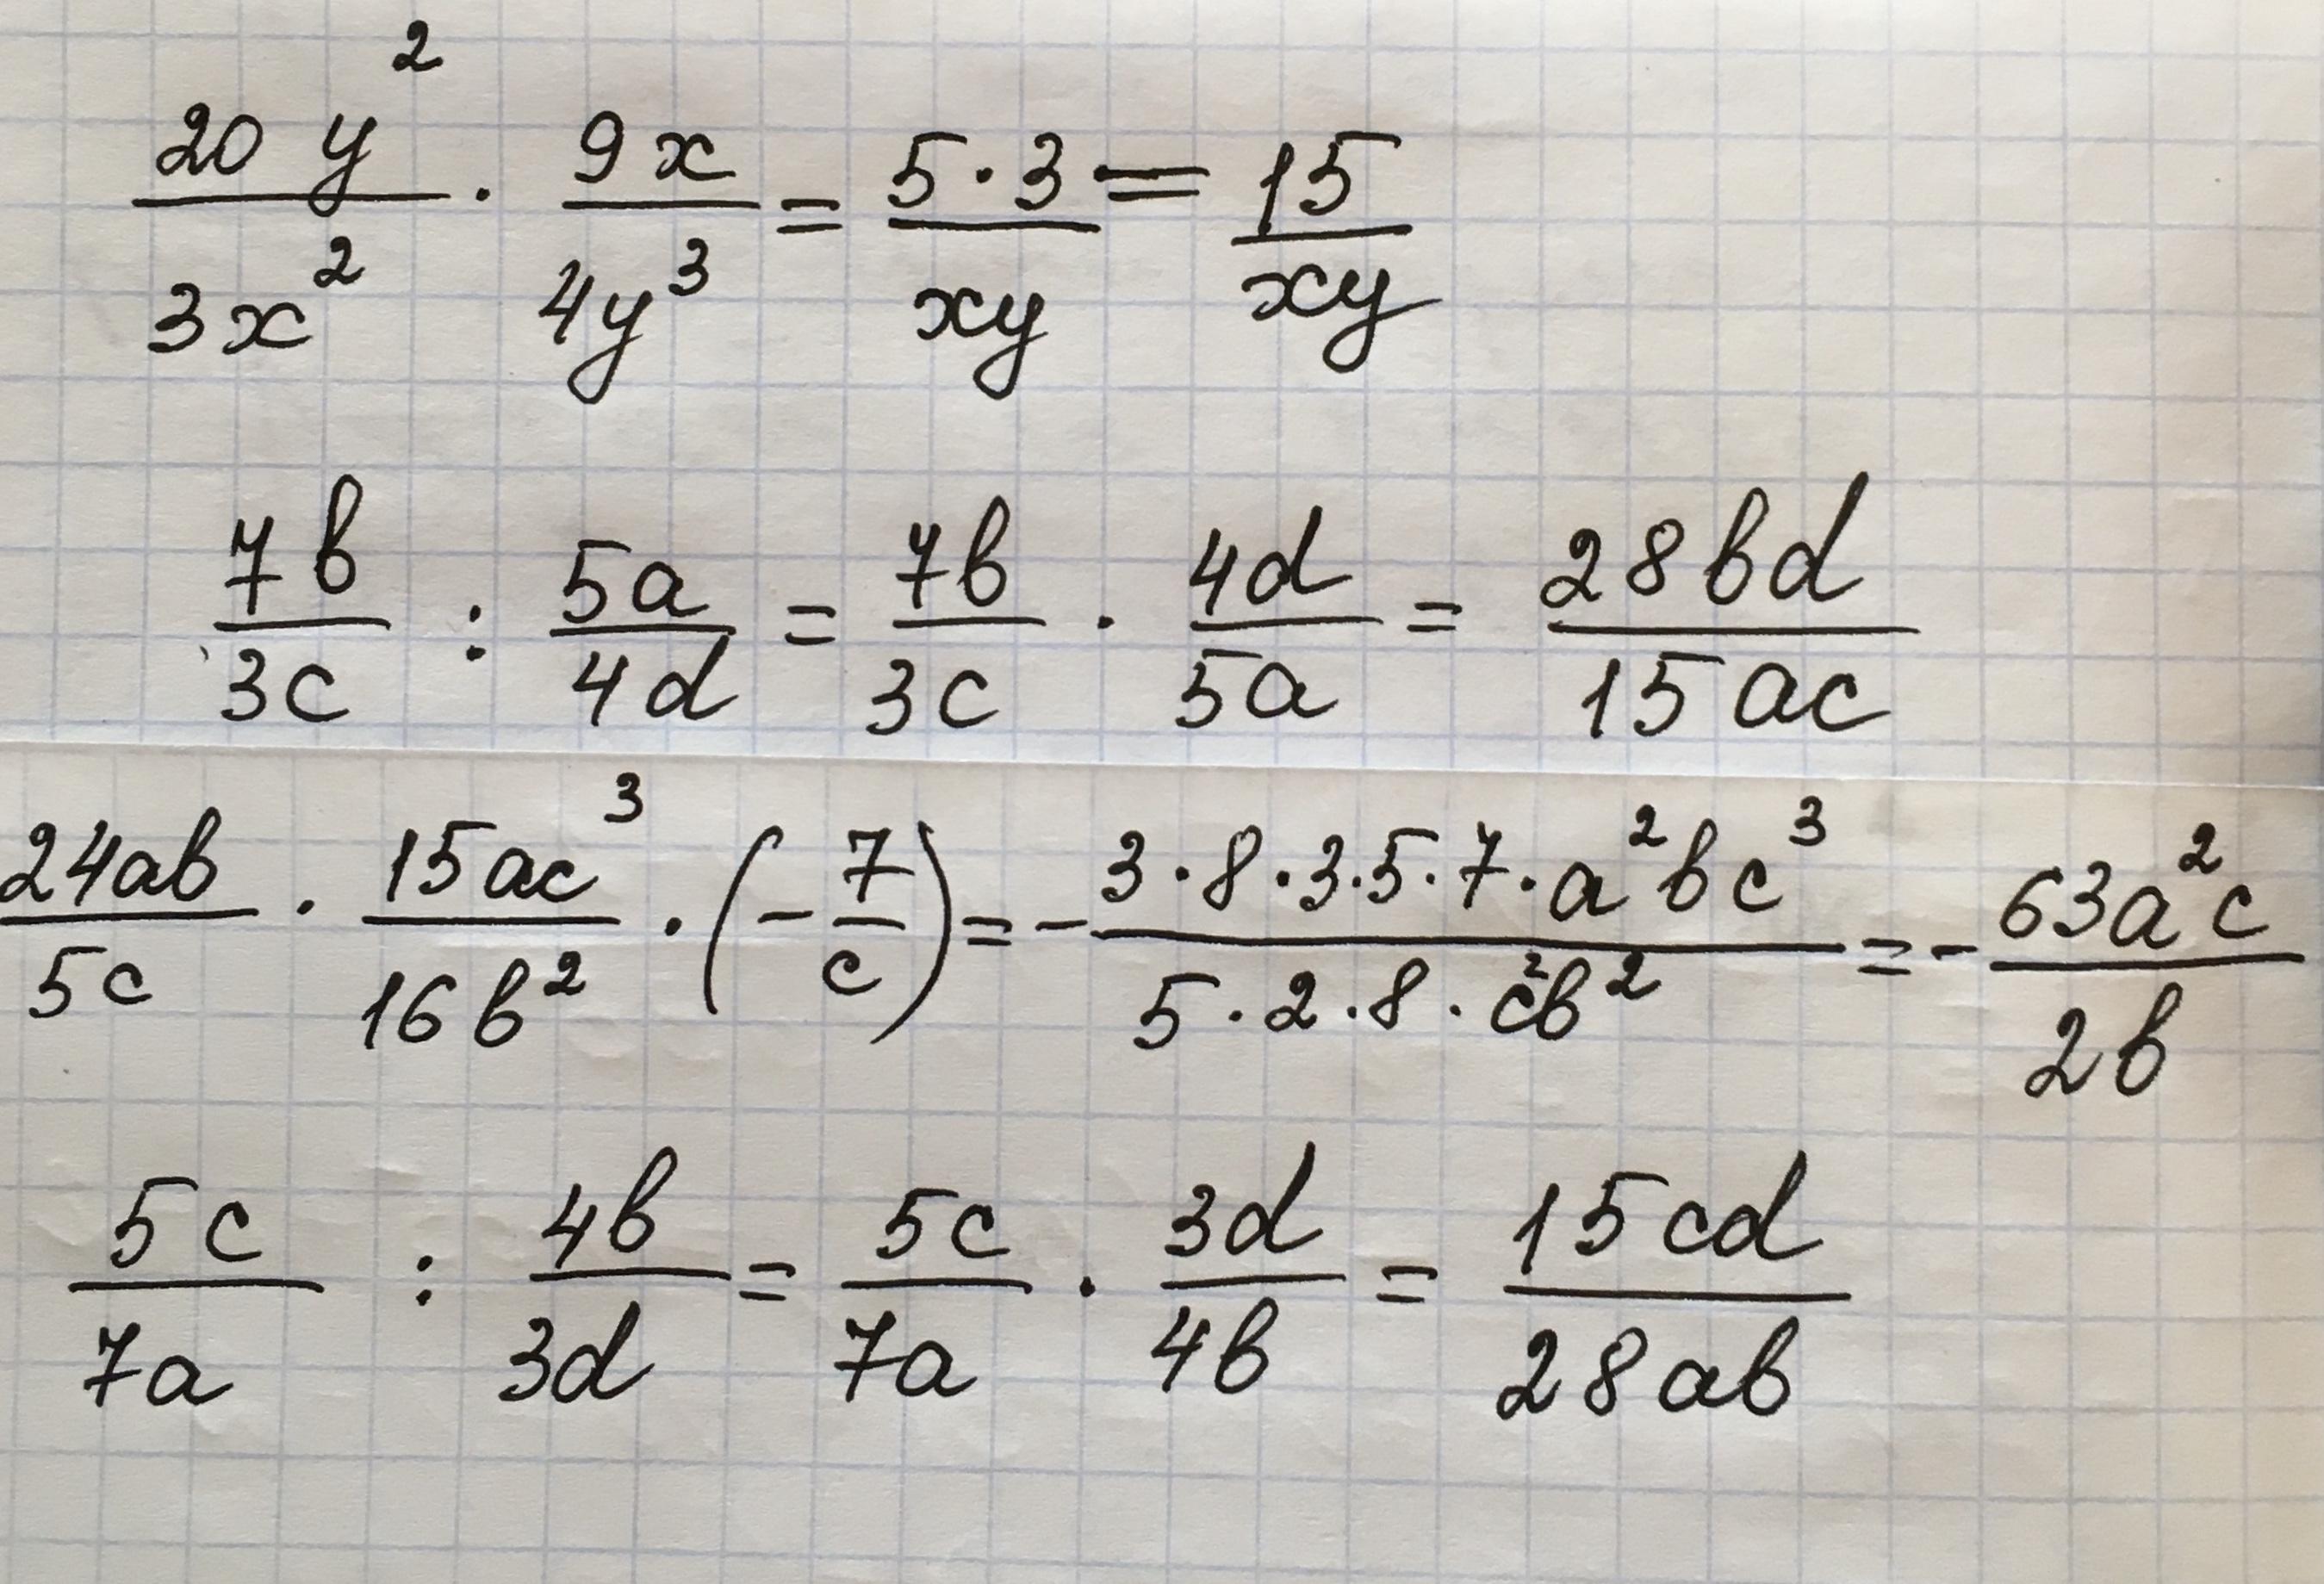 \frac{20y^2}{3x^2} \cdot \frac{9x}{4y^3} = \frac{5 \cdot 3}{xy} = \frac{15}{xy}
\frac{7b}{3c} : \frac{5a}{4d} = \frac{7b}{3c} \cdot \frac{4d}{5a} = \frac{28bd}{15ac}
\frac{24ab}{5c} \cdot \frac{15ac^3}{16b^2} \cdot \left(-\frac{7}{c}\right) = -\frac{3 \cdot 8 \cdot 3 \cdot 5 \cdot 7 \cdot a^2bc^3}{5 \cdot 2 \cdot 8 \cdot c^2b^2} = -\frac{63a^2c}{2b}
\frac{5c}{7a} : \frac{4b}{3d} = \frac{5c}{7a} \cdot \frac{3d}{4b} = \frac{15cd}{28ab}